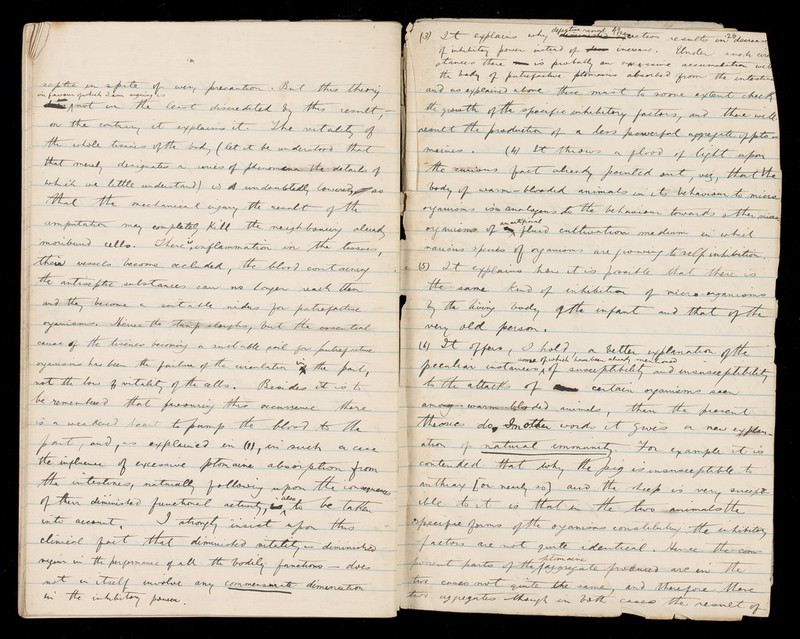 septic in spite of very precaution. But this theory
in favour of which I am arguing is
not in the least discredited by this result,
on the contrary it explains it. The vitality of
the whole tissues of the body (let it be understood that
that merely designates a series of phenomena the details of
which we little understand) is undoubtedly lowered, so
that the mechanical injury the result of the
amputation may completely kill the neighbouring already
moribund cells. There is inflammation in the tissues,
their vessels become occluded, the blood containing
the antiseptic substances can no longer reach them
and they become a suitable nidus for putrefactive
organisms. Hence the stump sloughs, but the essential
cause of the tissues becoming a suitable soil for putrefactive
organisms has been the failure of the circulation in the part,
not the low vitality of the cells. Besides it is to
be remembered that favouring this occurrence there
is a weakened heart to pump the blood to the
part, and, as explained in (1), in such a case
the influence of excessive ptomaine absorption from
the intestines, naturally following upon the consequences
of their diminished functional activity, is also to be taken
into account. I strongly insist upon this
clinical fact that diminished vitality, as diminished
vigour in the performance of all the bodily functions — does
not in itself involve any commensurate diminution
in the inhibitory power.
26
(3) It explains why defective renal action results in decrease
of inhibitory power instead of increase. Under such circum
stances there is probably an excessive accumulation within
the body of putrefactive ptomaines absorbed from the intestines
and as explained above these must to some extent check
the growth of the specific inhibitory factors, and there will
result the production of a less powerful aggregate of ptomaines.
(4) It throws a flood of light upon
the curious fact already pointed out, viz, that the
body of warm-blooded animals in its behaviour to micro
organisms is analogous to the behaviour towards other micro
organisms of a nutrient fluid cultivation medium in which
various species of organisms are growing to self inhibition.
(5) It explains how it is possible that there is
the same kind of inhibition of micro-organisms
by the living body of the infant and that of the
very old person.
(6) It offers, I hold, a better explanation of the
peculiar instances, some of which have been already mentioned, of susceptibility and unsusceptibility
to the attacks of certain organisms seen
among warm-blooded animals, than the present
theories do, in other words it gives a new explan-
ation of natural immunity. For example it is
contended that why the pig is unsusceptible to
anthrax [or nearly so] and the sheep is very suscept
ible to it is that in the two animals the
specific forms of the organisms constituting the inhibitory
factors are not quite identical. Hence the com
ponent parts of the ptomaine aggregate produced are in the
two cases not quite the same, and therefore these
two aggregates though in both cases the result of